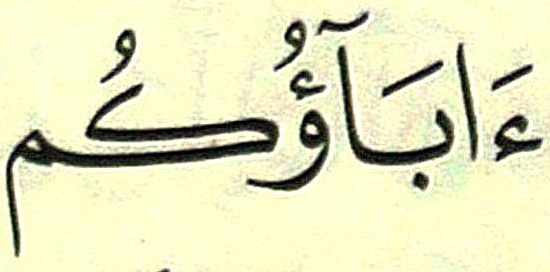 ءَابَآؤُكُم